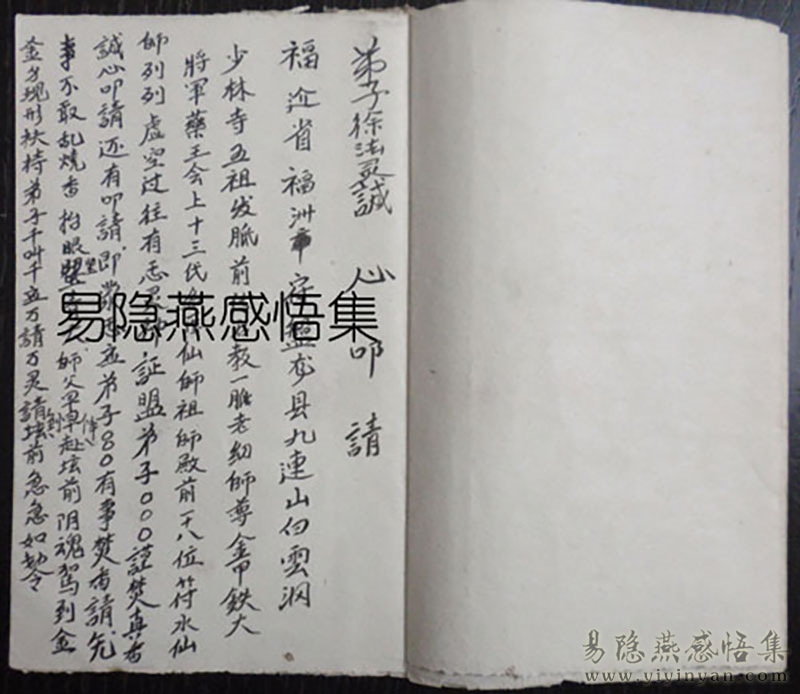 弟子徐法灵誠心叩請
福近省福洲市安盤龙县九連山白雲洞
少林寺五祖发脈前教一脈老幼師尊金甲鉄大
將軍藥王会上十三代仙師祖師殿前一十八位符水仙
師列列虛空过往有忌灵証盟弟子000謹焚真香
誠心叩請还有叩請即弟子80有事焚香請无
事不敢乱燒香抬眼望師父早早赴坛前阴魂駕到金
金身现形扶持弟子千叫千灵万請万灵請到坛前急急如勅令
易隐燕感悟集
易隐燕感悟集
www.yiyinyan.com